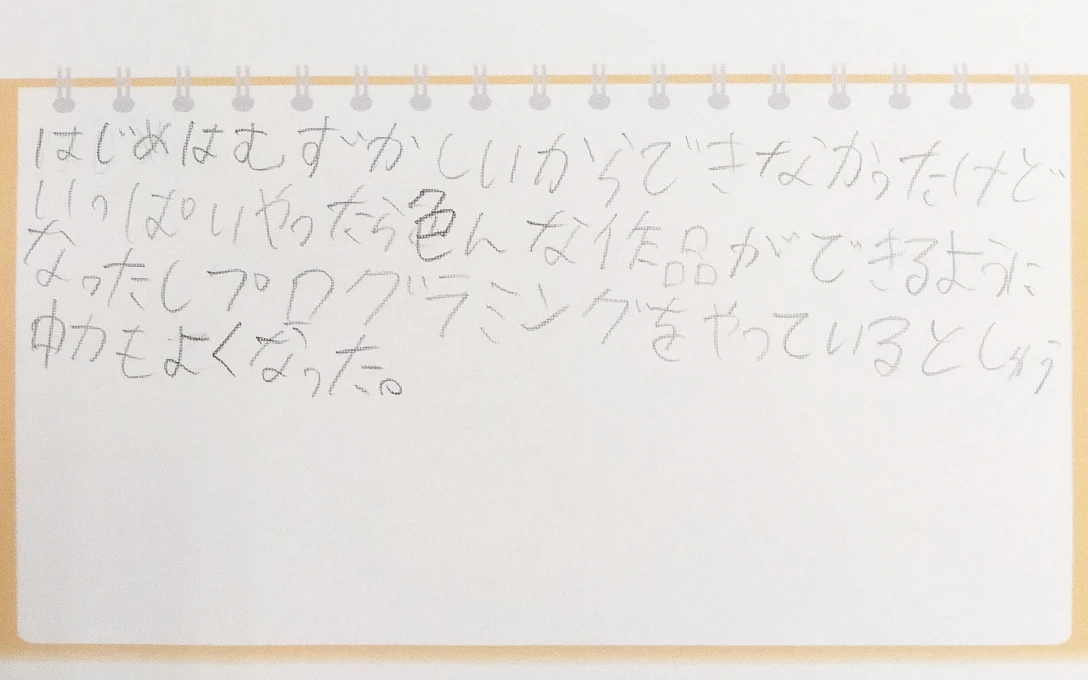 はじめはむずかしいからできなかったけど
いっぱいやったら色んな作品ができるように
なったしプログラミングをやっているとしゅう
中力もよくなった。